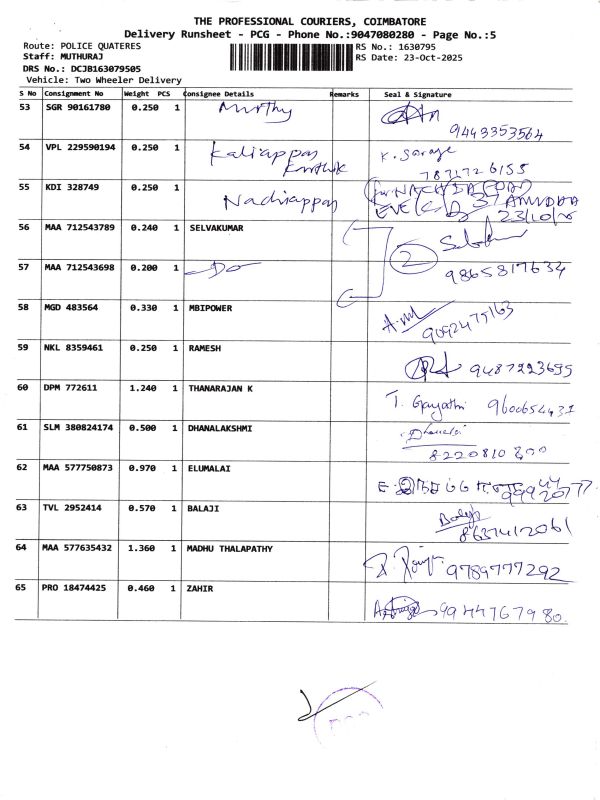 THE PROFESSIONAL COURIERS, COIMBATORE
Delivery Runsheet - PCG - Phone No.:9047080280 - Page No.:5
Route: POLICE QUATERES RS No.: 1630795
Staff: MUTHURAJ RS Date: 23-Oct-2025
DRS No.: DCJB163079505
Vehicle: Two Wheeler Delivery
S No Consignment No Weight PCS Consignee Details Remarks Seal & Signature
53 SGR 90161780 0.250 1 Murthy
9443353564
54 VPL 229590194 0.250 1 Kaliappan K. Saroja
Karthik 7871726155
55 KDI 328749 0.250 1 Nachiappan
23/10/25
56 MAA 712543789 0.240 1 SELVAKUMAR
2
57 MAA 712543698 0.200 1 Do 9865817634
58 MGD 483564 0.330 1 MBIPOWER
9092475163
59 NKL 8359461 0.250 1 RAMESH 9487223695
60 DPM 772611 1.240 1 THANARAJAN K T. Gayathri 9600654431
61 SLM 380824174 0.500 1 DHANALAKSHMI
8220810300
62 MAA 577750873 0.970 1 ELUMALAI
63 TVL 2952414 0.570 1 BALAJI Balaji
8637412061
64 MAA 577635432 1.360 1 MADHU THALAPATHY 9789777292
65 PRO 18474425 0.460 1 ZAHIR 9944767980.